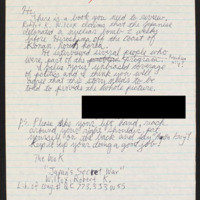 Hi,
Here is a book you need to review.
Robt. K. Wilcox claims that the Japanese
detonated a nuclear bomb - 2 weeks
before Hiroshima off the coast of
Konan, North Korea.
He interviewed several people who
were part of the program.
I value your unbiased coverage
of politics and I think you will
agree that this story needs to be
told to provide the whole picture.
P.S. Please take your left hand, reach
around your right shoulder, pat
yourself on the back and say
keep up your doing a good job!
Thank
"Japan's Secret War"
Wilcox, Robert K.